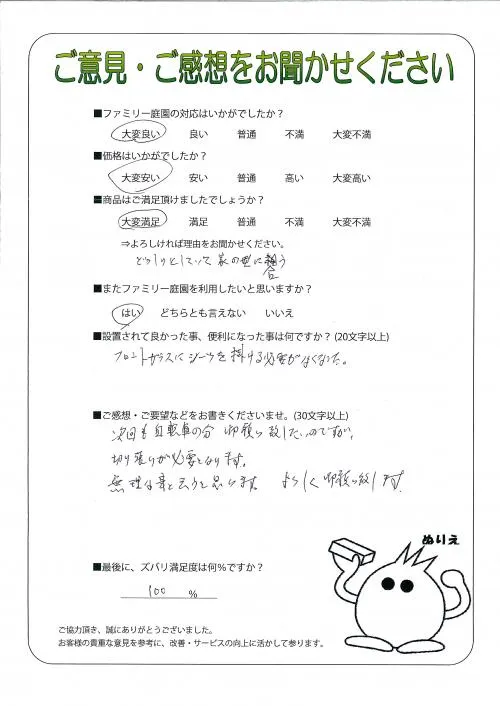 ご意見・ご感想をお聞かせください
■ファミリー庭園の対応はいかがでしたか？
大変良い 良い 普通 不満 大変不満
■価格はいかがでしたか？
大変安い 安い 普通 高い 大変高い
■商品はご満足頂けましたでしょうか？
大変満足 満足 普通 不満 大変不満
⇒よろしければ理由をお聞かせください。
どっしりとしていて 家の型に
合う
■またファミリー庭園を利用したいと思いますか？
はい どちらとも言えない いいえ
■設置されて良かった事、便利になった事は何ですか？ (20文字以上)
フロントガラスにシーツを掛ける必要がなくなった。
■ご感想・ご要望などをお書きくださいませ。(30文字以上)
次回も自転車の分 御願い致したいのですが、
切り張りが必要となります。
無理な事と思います。 よろしく御願い致します。
ぬりえ
■最後に、ズバリ満足度は何％ですか？
100 ％
ご協力頂き、誠にありがとうございました。
お客様の貴重な意見を参考に、改善・サービスの向上に活かして参ります。